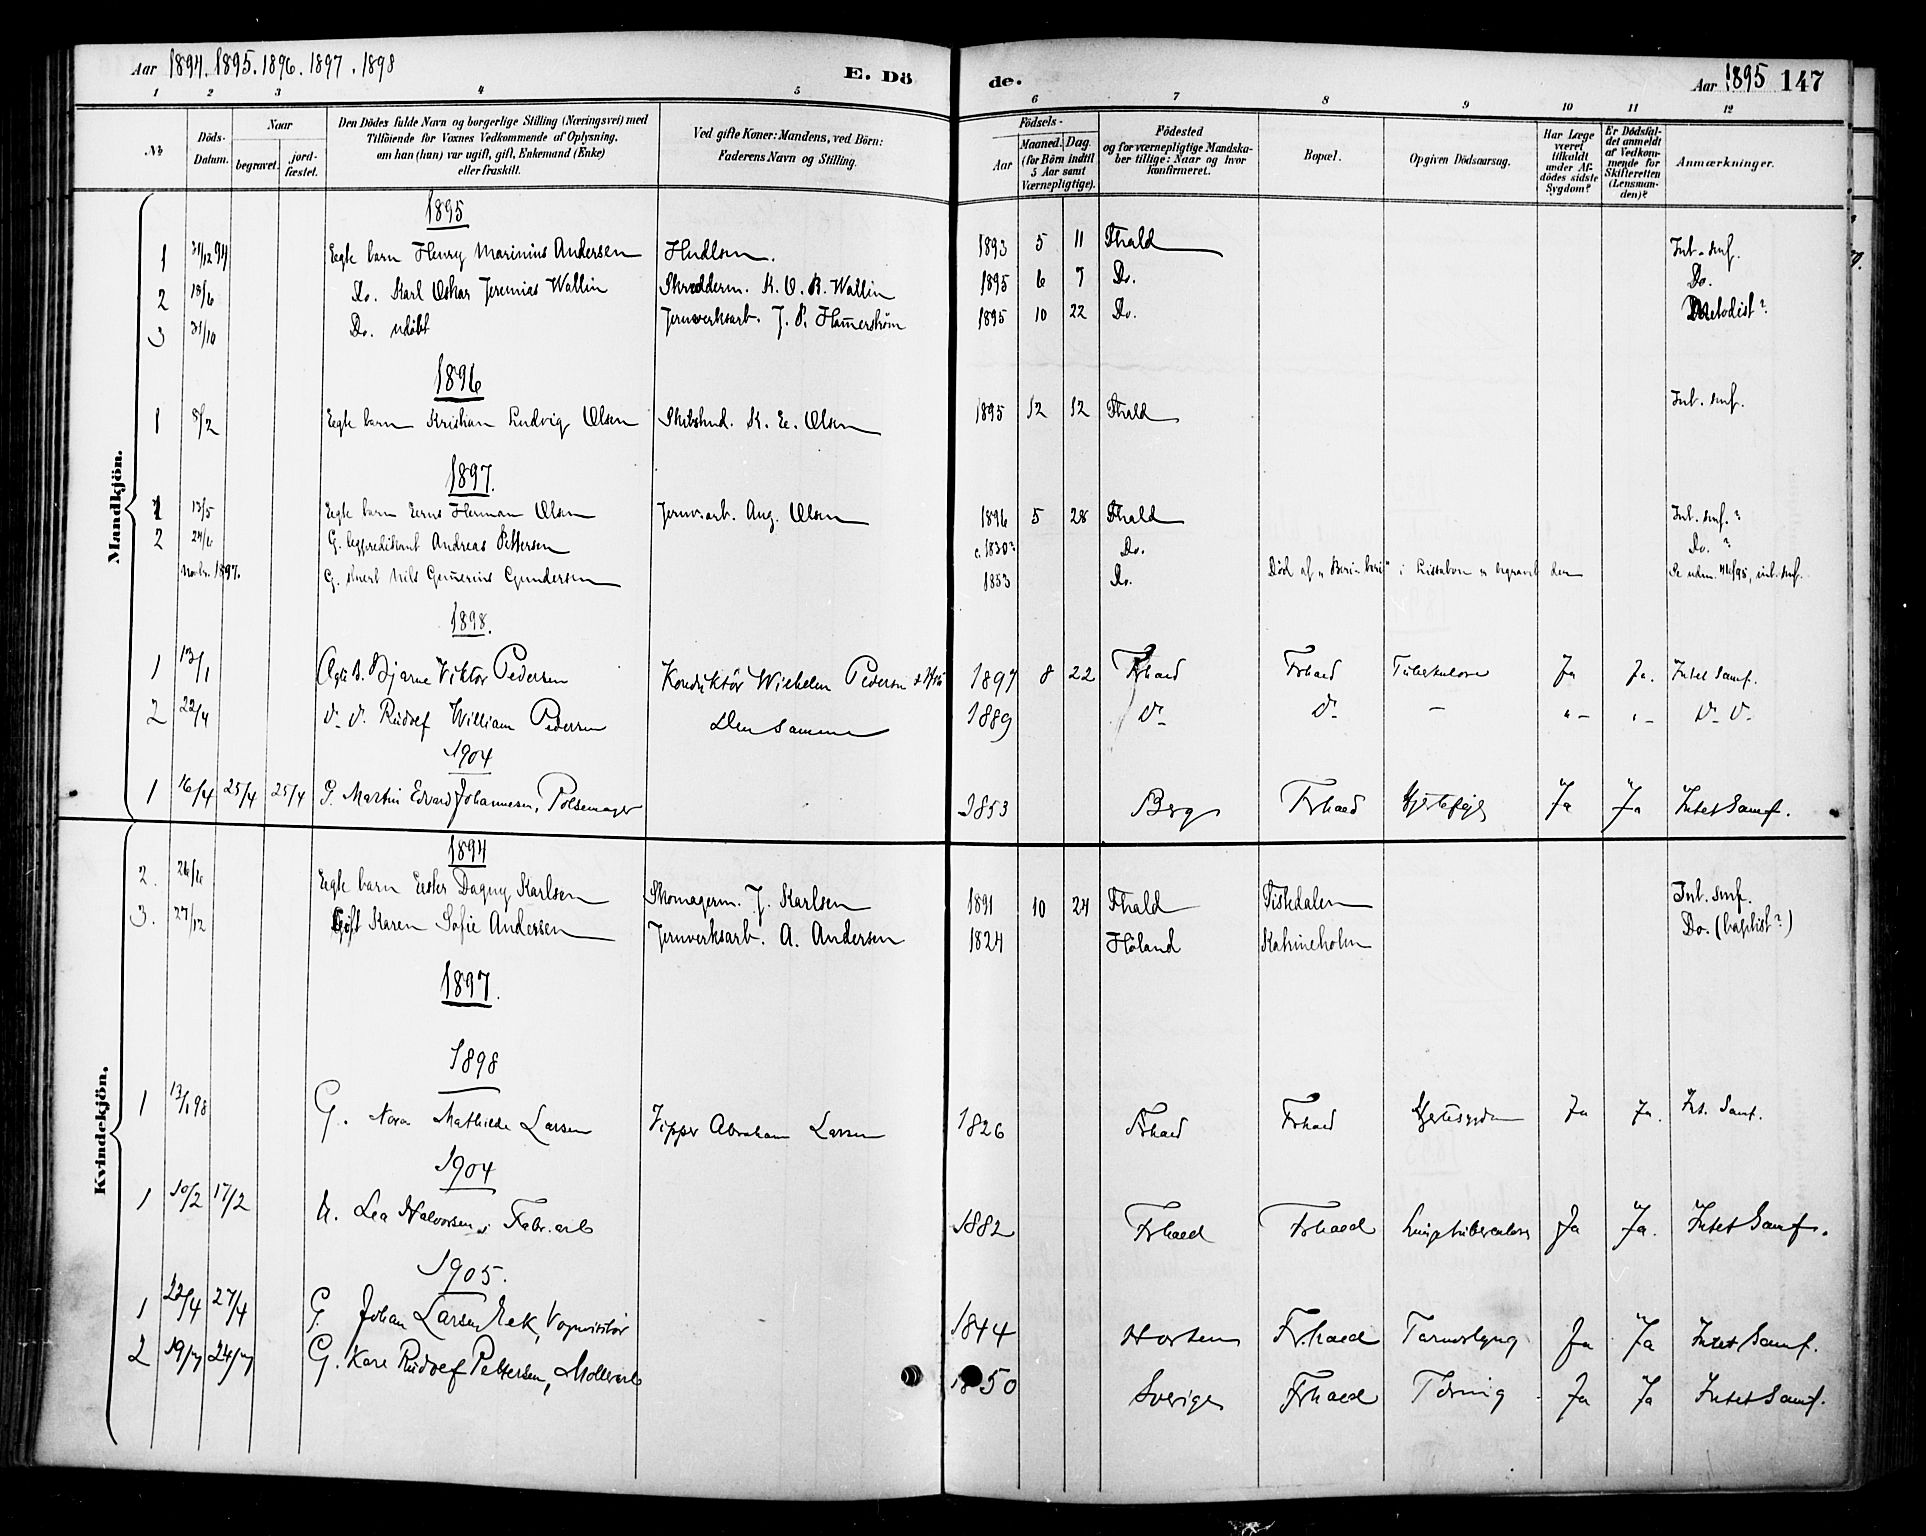 Aar 1894. 1895. 1896. 1897. 1898 E. Dö de. Aar 1895 147
1 2 3 4 5 6 7 8 9 10 11 12
No Döds-Datum. Naar begravet. jordfæstet. Den Dödes fulde Navn og borgerlige Stilling (Næringsvei) med Tilföiende for Voxnes Vedkommende af Oplysning, om han (hun) var ugift, gift, Enkemand (Enke) eller fraskilt. Ved gifte Koner: Mandens, ved Börn: Faderens Navn og Stilling. Födsels- Aar Maaned. Dag. (for Börn indtil 5 Aar samt Værnepligtige). Födested og for værnepligtige Mandskaber tillige: Naar og hvor konfirmeret. Bopæl. Opgiven Dödsaarsag. Har Læge været tilkaldt under Afdödes sidste Sygdom? Er Dödsfaldet anmeldt af Vedkommende for Skifteretten (Lensmanden)? Anmærkninger.
Mandkjön.
1895
1 31/12 94 Egte barn Henry Marinius Andersen 1893 5 11 Fhald Int. smf.
2 18/6 Do. Karl Oskar Jeremias Wallin Skrædderm. K. O. R. Wallin 1895 6 7 Do. Do.
3 31/10 Do. udøbt Jernverksarb. J. P. Hamerstrøm 1895 10 22 Do. Metodist?
1896
1 8/2 Egte barn Kristian Ludvig Olsen Skibstmd. K. E. Olsen 1895 12 12 Fhald Int. smf.
1897.
1 13/5 Egte barn Herman Olsen Jernv.arb. Aug. Olsen 1896 5 28 Fhald Int. smf.?
2 24/6 G. lægpredikant Andreas Pettersen c. 1830? Do. Do.?
Novbr. 1897. G. Nils Gundersen 1853 Do. Død af "Beri-beri" i Lissabon & begravet der int. smf.
1898.
1 13/1 Bjarne Viktor Pedersen Konduktør Wilhelm Pedersen 1897 8 22 Frhald Frhald Tuberkulose Ja Ja. Intet Samf.
2 22/4 D. D. Rudolf William Pedersen Den samme 1889 D- D- - "- "- D- D-
1904
1 16/4 25/4 25/4 G. Martin Edvard Johannesen, Pølsemager 1853 Berg Frhald Hjertefejl Ja Ja Intet Samf.
Kvindekjön.
1894
2. 26/6 Egte barn Ester Dagny Karlsen Skomagerm. J. Karlsen 1891 10 24 Fhald Tistedalen Int. smf.
3. 27/12 Gift Karen Sofie Andersen Jernverksarb. A. Andersen 1824 Høland Katrineholm Do. (baptist?)
1897.
1898
1 13/1 98 G. Nora Mathilde Larsen Abraham Larsen 1826 Frhald Frhald Hjertesygdom Ja Ja. Int. Samf.
1904
1 10/2 17/2 U. Lea Halvorsen, Fabr.arb 1882 Frhald Frhald Lungetuberculose Ja Ja. Intet Samf.
1905.
1 22/4 27/4 G. Johan Larsen Eek, Vognvisitør 1844 Horten Frhald Tarmslyng Ja Ja Intet Samf.
2 19/7 24/7 G. Karl Rudolf Pettersen, Møllearb 1850 Sverige Frhald Tæring Ja Ja Intet Samf.